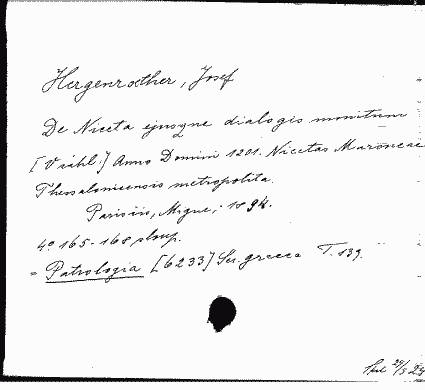 Hergenroether, Josef
De Niceta ejusque dialogis monitum
[V záhl.:] Anno Domini 1201. Nicetas Maroneae
Thessalonicensis metropolita.
Parisiis, Migne, 1894.
4° 165-168 sloup.
= Patrologia [6233] Ser. graeca T. 139
29/3 29